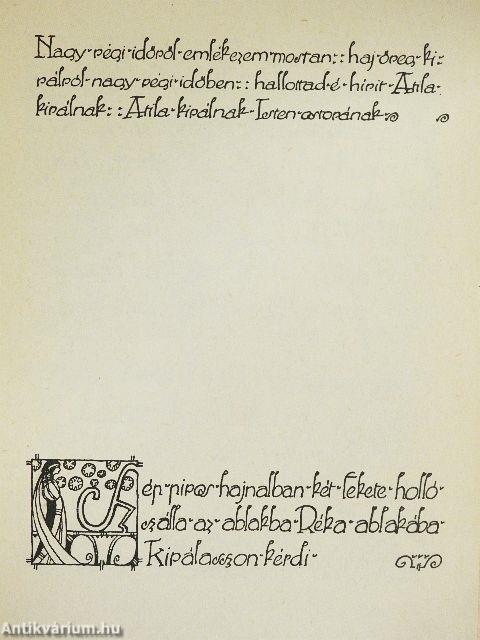 Nagy·régi·időről·emlékezem·mostan::haj·öreg·ki=
rálról·nagy·régi·időben::hallottad·é·hírit·Atila·
királnak::Atila·királnak·Isten·ostorának
Szép·piros·hajnalban·két·fekete·holló·
szálla·az·ablakba·Réka·ablakába·
Királasszon·kérdi·
Antikvárium.hu